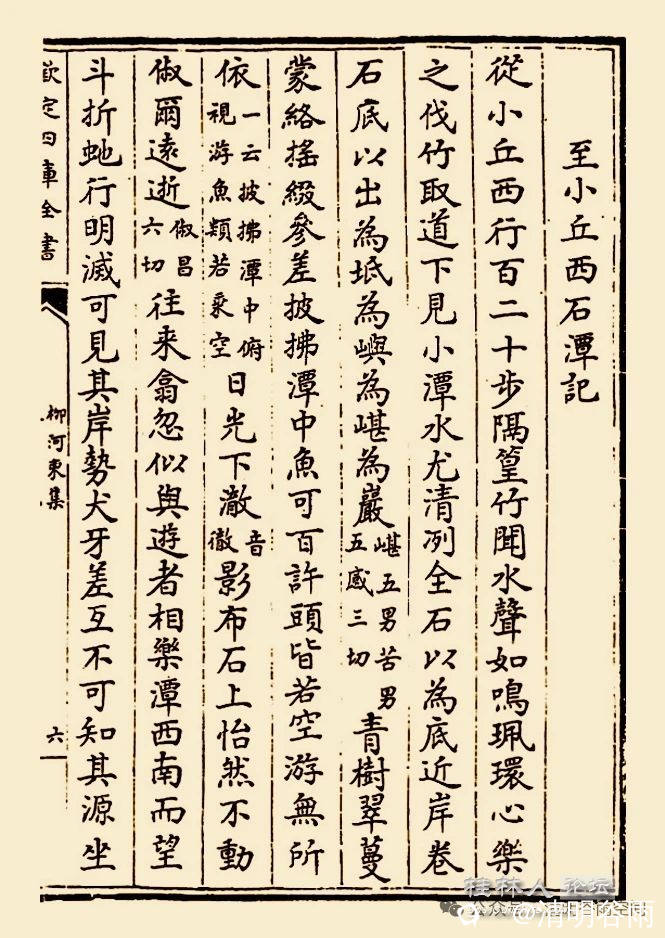 至小丘西石潭記
從小丘西行百二十步隔篁竹聞水聲如鳴珮環心樂
之伐竹取道下見小潭水尤清冽全石以為底近岸卷
石底以出為坻為嶼為嵁為巖嵁五男苦男五感三切青樹翠蔓
蒙絡搖綴參差披拂潭中魚可百許頭皆若空游無所
依一云披拂潭中俯視游魚類若乘空日光下澈音徹影布石上怡然不動
俶爾遠逝俶昌六切往來翕忽似與遊者相樂潭西南而望
斗折虵行明滅可見其岸勢犬牙差互不可知其源坐
欽定四庫全書
柳河東集
六
桂林人论坛
公众号
@清明谷雨